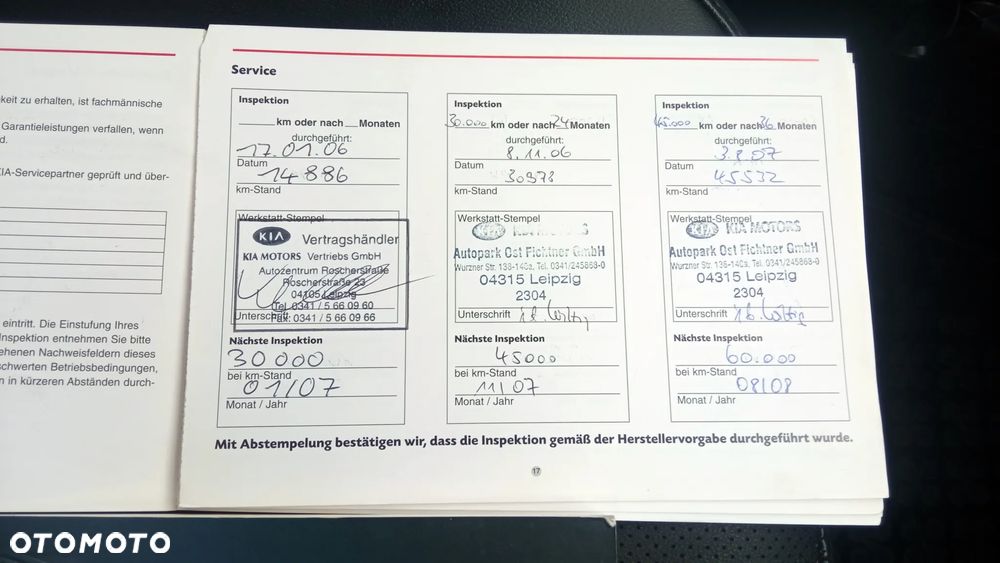 keit zu erhalten, ist fachmännische
Garantieleistungen verfallen, wenn
d.
KIA-Servicepartner geprüft und über-
eintritt. Die Einstufung Ihres
Inspektion entnehmen Sie bitte
ehenen Nachweisfeldern dieses
schwerten Betriebsbedingungen,
n in kürzeren Abständen durch-
Service
Inspektion
km oder nach Monaten
durchgeführt:
17.01.06
Datum
14886
km-Stand
Werkstatt-Stempel
KIA Vertragshändler
KIA MOTORS Vertriebs GmbH
Autozentrum Roscherstraße
Roscherstraße 23
04105 Leipzig
Tel. 0341 / 5 66 09 60
Unterschrift
Fax: 0341 / 5 66 09 66
Nächste Inspektion
30 000
bei km-Stand
01/07
Monat / Jahr
Inspektion
30.000 km oder nach 24 Monaten
durchgeführt:
8.11.06
Datum
30978
km-Stand
Werkstatt-Stempel
KIA MOTORS
Autopark Ost Fichtner GmbH
Wurzner Str. 138-140a, Tel. 0341/245868-0
04315 Leipzig
2304
Unterschrift
Nächste Inspektion
45000
bei km-Stand
11/07
Monat / Jahr
Inspektion
45.000 km oder nach 36 Monaten
durchgeführt:
3.8.07
Datum
45532
km-Stand
Werkstatt-Stempel
KIA KIA MOTORS
Autopark Ost Fichtner GmbH
Wurzner Str. 138-140a, Tel. 0341/245868-0
04315 Leipzig
2304
Unterschrift
Nächste Inspektion
60.000
bei km-Stand
08/08
Monat / Jahr
Mit Abstempelung bestätigen wir, dass die Inspektion gemäß der Herstellervorgabe durchgeführt wurde.
17
OTOMOTO